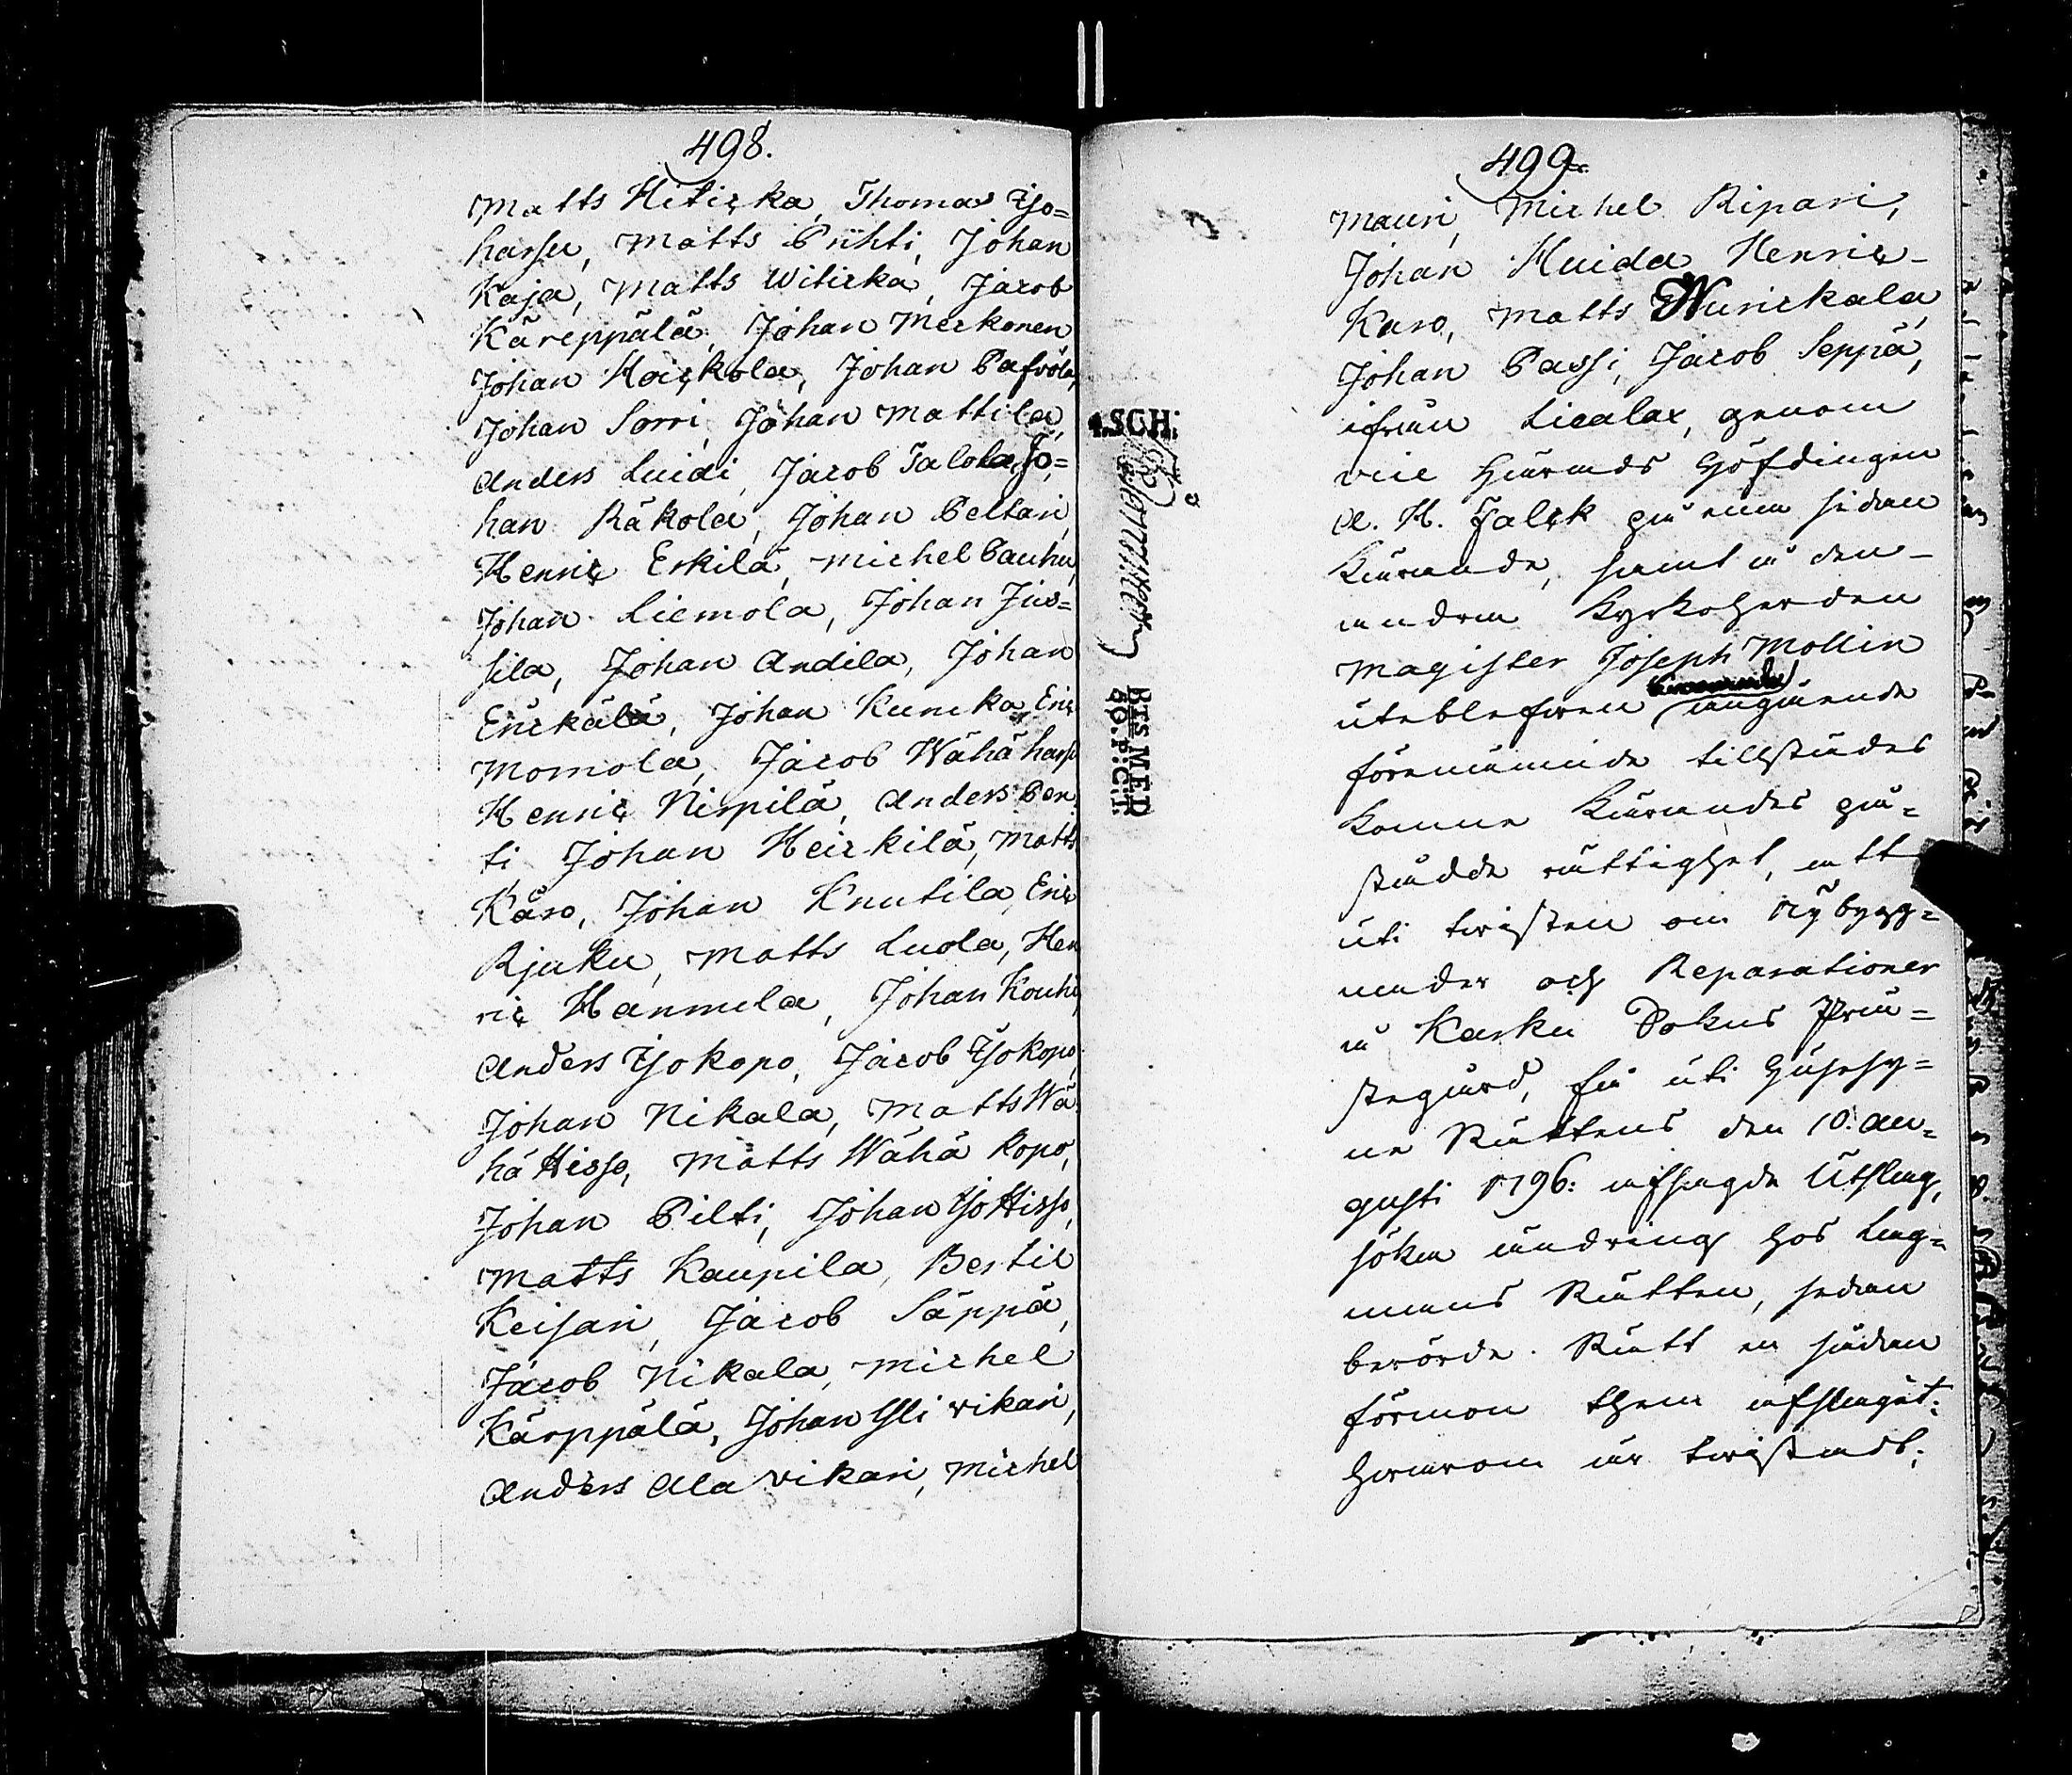 498.
Matts Hiticka, Thomas Yjo=
harju, Matts Prihti, Johan
Kaja, Matts Witicka, Jacob
Käreppälä, Johan Merkonen,
Johan Hoickola, Johan Pafvola,
Johan Sorri, Johan Mattila,
Anders Luidi, Jacob Talola, Jo=
han Räkola, Johan Peltari,
Henric Erkilä, Michel Pauhu,
Johan Liemola, Johan Jus=
sila, Johan Andila, Johan
Erickälä, Johan Kunicka, Eric
Momola, Jacob Wähä harju
Henric Nirpilä, Anders Pen
ti, Johan Heickilä, Matts
Käro, Johan Knutila, Eric
Rjuku, Matts Luola, Hen
ric Hanmula, Johan Kouhi,
Anders Yjokopo, Jacob Yjokopo,
Johan Nikala, Matts Wä
hä Hisso, Matts Wähä kopo,
Johan Pilti, Johan Yjo Hisso,
Matts Kaupila, Bertil
Keisari, Jacob Säppä,
Jacob Nikala, Michel
Kärppälä, Johan Yli vikari,
Anders Ala vikari, Michel
499.
Mauri, Michel Ripari,
Johan Huida, Henric
Karo, Matts Wurickala,
Johan Passi, Jacob Seppä,
ifrån Lialax, genom
vice Härads Höfdingen
A. H. Falck på ena sidan
Kärande, samt å den
andra Kyrkoherden
Magister Joseph Mollin
uteblefwen angående
förenämnde tillstådes
komne Kärandes på=
stådde rättighet, att
uti twisten om Nybygg=
nader och Reparationer
å Karku Sokns Prä=
stegård, få uti Husesy=
ne Rättens den 10. Au=
gusti 1796: afsagde Utslag,
söka ändring hos Lag=
mans Rätten, sedan
berörde Rätt en sådan
förmon them afslagit:
hwarom är twistadt;
4.SCH:
BTS MER